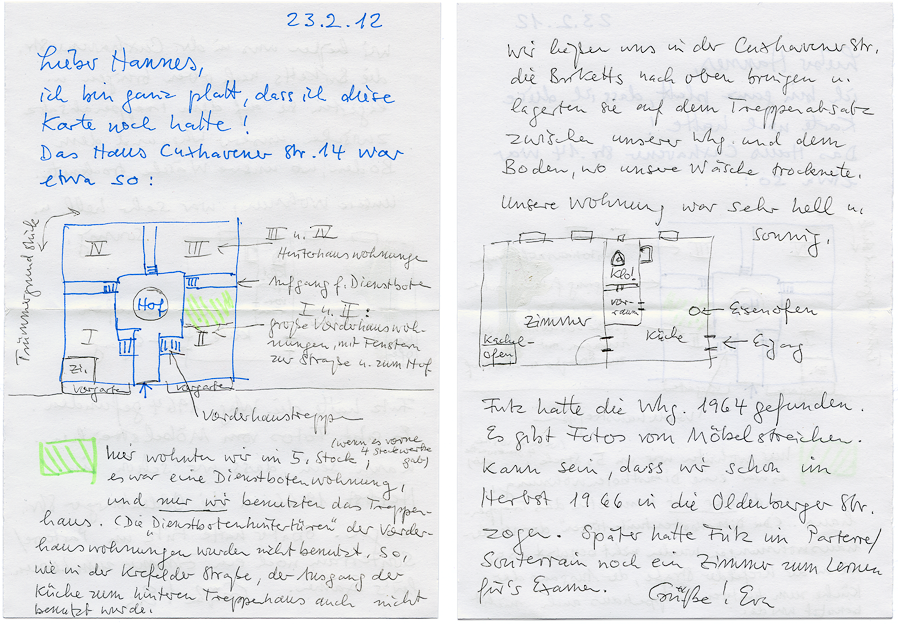 23.2.12
Lieber Hannes,
ich bin ganz platt, dass ich diese
Karte noch hatte!
Das Haus Cuxhavener Str. 14 war
etwa so:
Trümmergrundstück
IV
III
III u. IV
Hinterhauswohnungen
Aufgang f. Dienstboten
Hof
I
II
I u. II:
große Vorderhauswoh-
nungen, mit Fenstern
zur Straße u. zum Hof
Zi.
Vorgarten
Vorgarten
Vorderhaustreppe
hier wohnten wir im 5. Stock, (wenn es vorne
4 Stockwerke
gab)
es war eine Dienstbotenwohnung,
und nur wir benutzten das Treppen-
haus. (Die "Dienstbotenhintertüren" der Vorder-
hauswohnungen wurden nicht benutzt. So,
wie in der Krefelder Straße, der Ausgang der
Küche zum hinteren Treppenhaus auch nicht
benutzt wurde.
wir ließen uns in der Cuxhavener Str.
die Briketts nach oben bringen u.
lagerten sie auf dem Treppenabsatz
zwischen unserer Whg. und dem
Boden, wo unsere Wäsche trocknete.
Unsere Wohnung war sehr hell u.
sonnig.
Klo!
Vor-
raum
Zimmer
Küche
Eisenofen
Kachel-
ofen
Eingang
Fritz hatte die Whg. 1964 gefunden.
Es gibt Fotos vom Möbelstreichen.
Kann sein, dass wir schon im
Herbst 1966 in die Oldenburger Str.
zogen. Später hatte Fritz im Parterre/
Souterrain noch ein Zimmer zum Lernen
für's Examen. Grüße! Eva